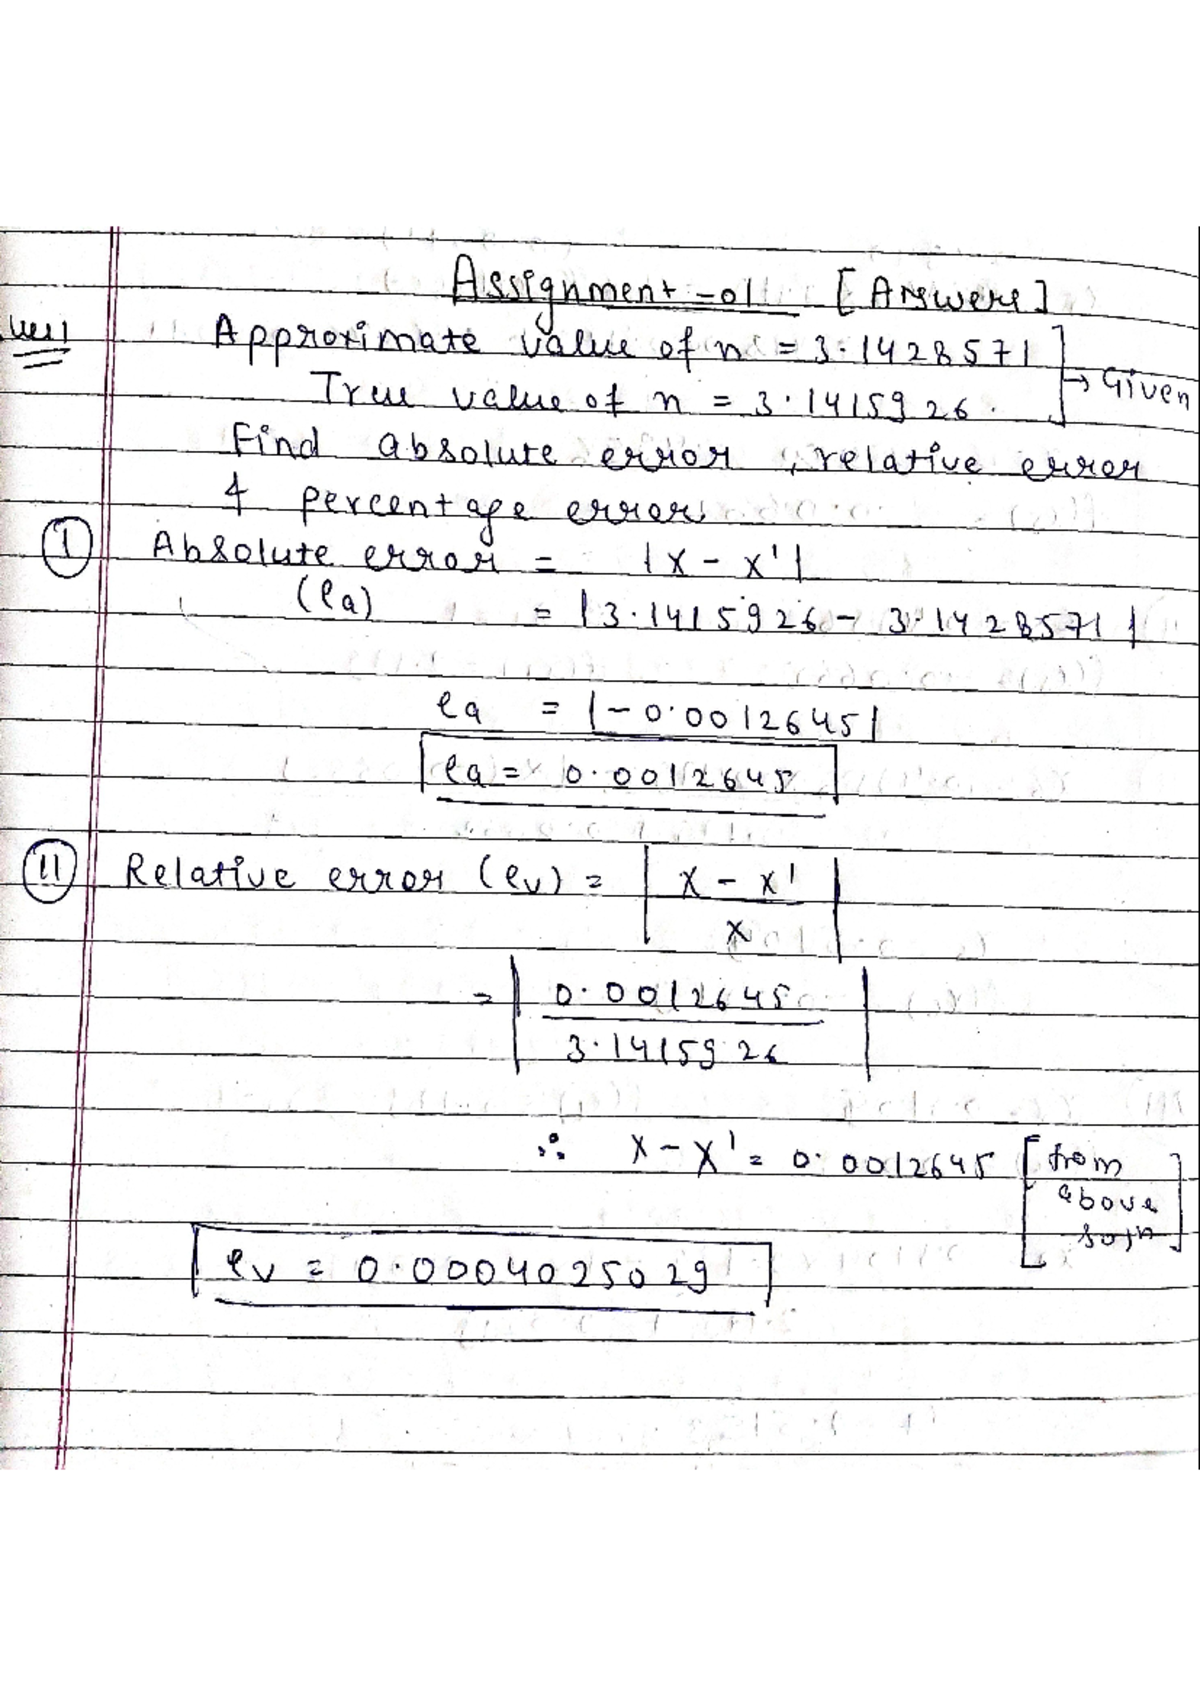 Assignment-01 [Answers]
Approximate value of n = 3.1428571
True value of n = 3.1415926. → Given
Find absolute error, relative error
& percentage error.
I Absolute error = |x - x'|
(ea) = |3.1415926 - 3.1428571|
ea = |-0.0012645|
ea = 0.0012645
II Relative error (ev) = | x - x' / x |
= | 0.0012645 / 3.1415926 |
∴ x - x' = 0.0012645 [from
above
soln]
ev = 0.0004025029